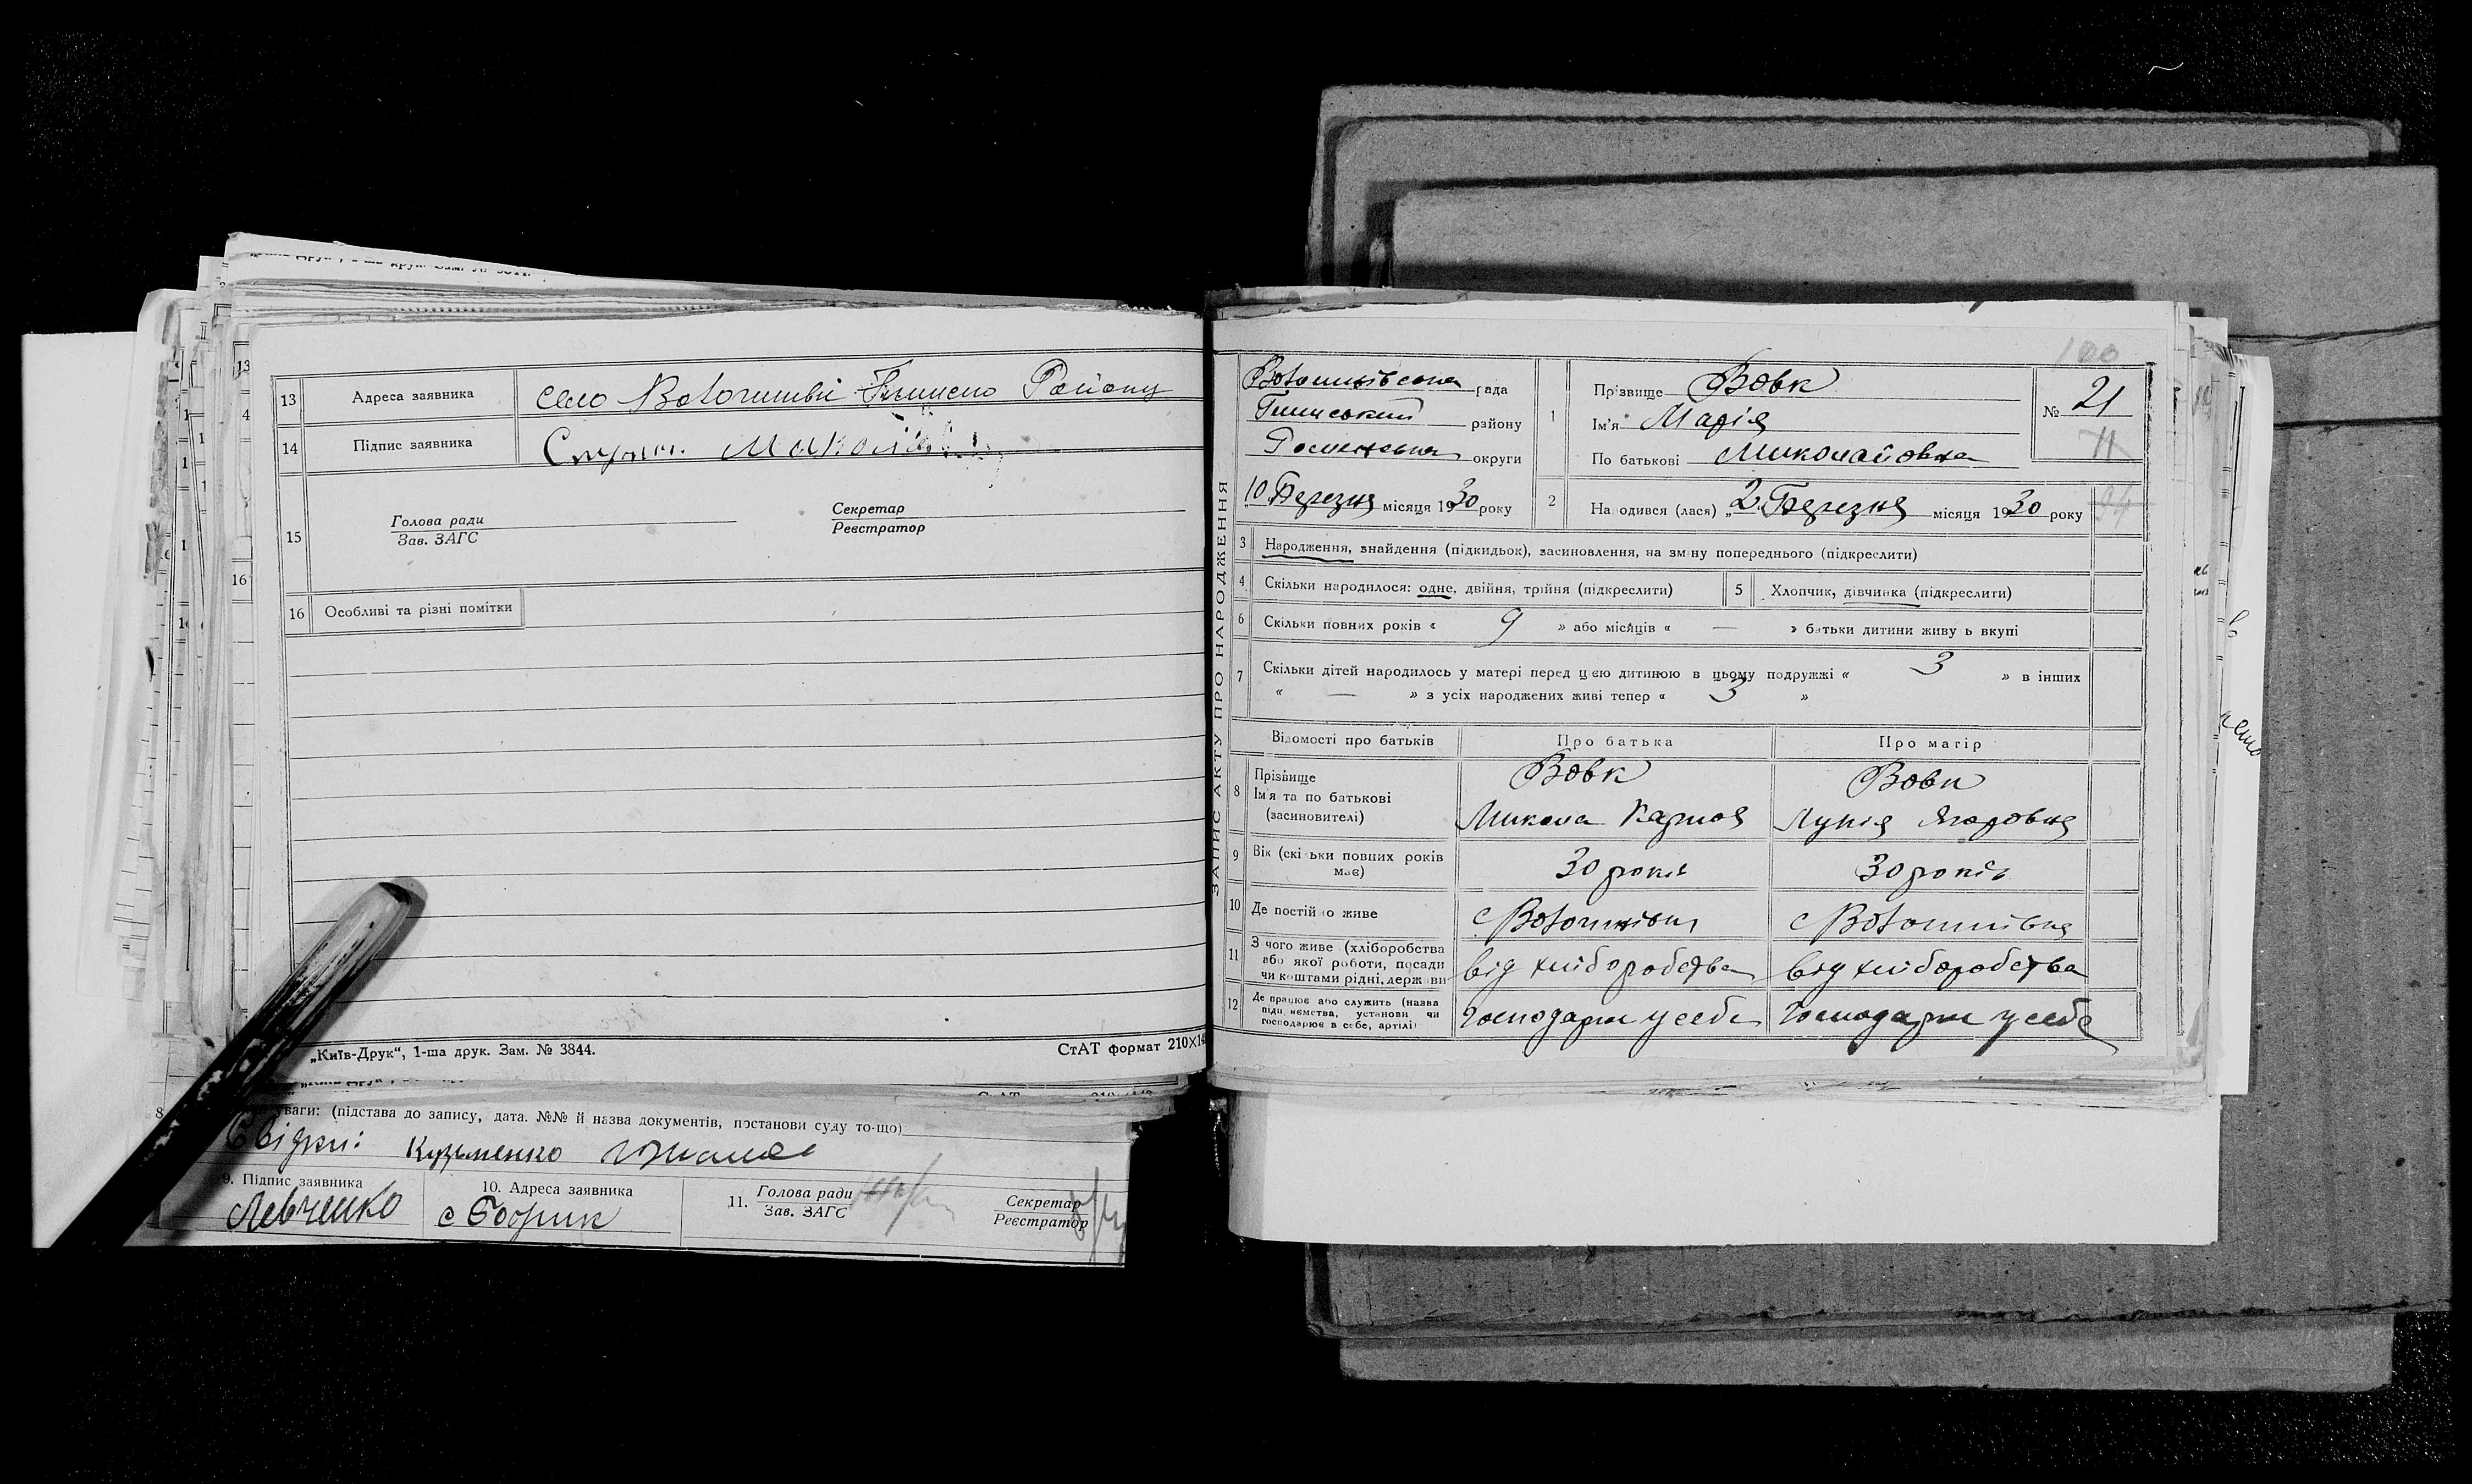 13 Адреса заявника село Району
14 Підпис заявника
15 Голова ради Секретар
Зав. ЗАГС Реєстратор
16 Особливі та різні помітки
„Київ-Друк“, 1-ша друк. Зам. № 3844. СтАТ формат 210×14
уваги: (підстава до запису, дата. №№ й назва документів, постанови суду то-що)
Свідки: Кузьменко
9. Підпис заявника 10. Адреса заявника 11. Голова ради Секретар
Зав. ЗАГС Реєстратор
Левченко с
ЗАПИС АКТУ ПРО НАРОДЖЕННЯ
100
рада
району
Роменська округи
10 Березня місяця 1930 року
1 Прізвище Вовк
Ім'я Марія
По батькові Миколайовна
№ 21
11
2 Народився (лася) „2 Березня місяця 1930 року
94
3 Народження, знайдення (підкидьок), засиновлення, на зміну попереднього (підкреслити)
4 Скільки народилося: одне, двійня, трійня (підкреслити) 5 Хлопчик, дівчинка (підкреслити)
6 Скільки повних років « 9 » або місяців « — » батьки дитини живуть вкупі
7 Скільки дітей народилось у матері перед цією дитиною в цьому подружжі « 3 » в інших
« — » з усіх народжених живі тепер « 3 »
Відомості про батьків Про батька Про матір
8 Прізвище
Ім'я та по батькові
(засиновителі)
Вовк
Микола
Вовк
9 Вік (скільки повних років має)
30 років 30 років
10 Де постійно живе
11 З чого живе (хліборобства
або якої роботи, посади
чи коштами рідні, держави
від хліборобства від хліборобства
12 Де працює або служить (назва
підприємства, установи чи
господарює в себе, артілі)
господарює у себе господарює у себе